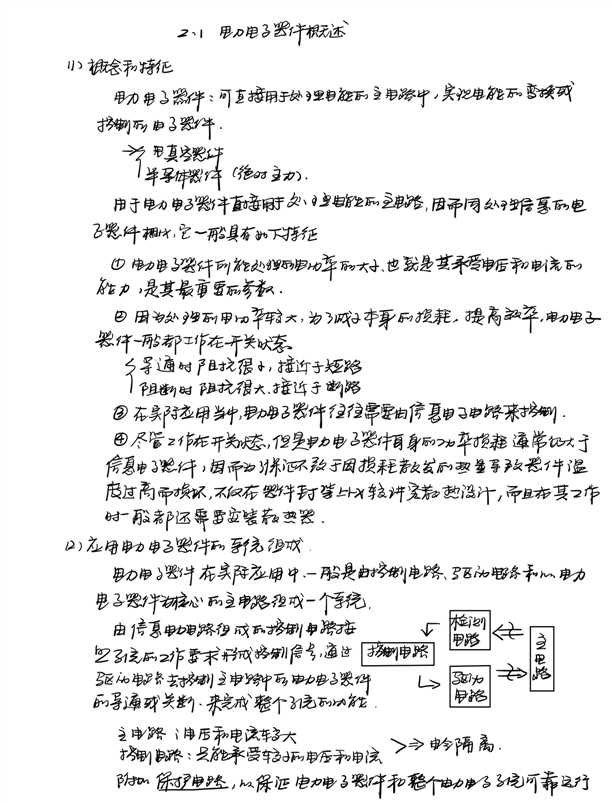 2.1 电力电子器件概述
(1) 概念和特征
电力电子器件：可直接用于处理电能的主电路中，实现电能的变换或
控制的电子器件.
电真空器件
半导体器件 (绝对主力).
由于电力电子器件直接用于处理电能的主电路，因而同处理信息的电
子器件相比，它一般具有如下特征
① 电力电子器件所能处理的电功率的大小，也就是其承受电压和电流的
能力，是其最重要的参数.
② 因为处理的电功率较大，为了减小本身的损耗，提高效率，电力电子
器件一般都工作在开关状态
导通时阻抗很小，接近于短路
阻断时阻抗很大，接近于断路
③ 在实际应用当中，电力电子器件往往需要由信息电子电路来控制.
④ 尽管工作在开关状态，但是电力电子器件自身的功率损耗通常仍大于
信息电子器件，因而为保证不致于因损耗散发的热量导致器件温
度过高而损坏，不仅在器件封装上比较讲究散热设计，而且在其工作
时一般都还需要安装散热器.
(2) 应用电力电子器件的系统组成.
电力电子器件在实际应用中，一般是由控制电路、驱动电路和以电力
电子器件为核心的主电路组成一个系统.
由信息电力电路组成的控制电路按
照系统的工作要求形成控制信号，通过
驱动电路去控制主电路中的电力电子器件
的导通或关断，来完成整个系统的功能.
检测
电路
控制电路
驱动
电路
主
电
路
主电路：电压和电流较大
控制电路：只能承受较小的电压和电流
⇒ 电气隔离.
附加保护电路，以保证电力电子器件和整个电力电子系统可靠运行